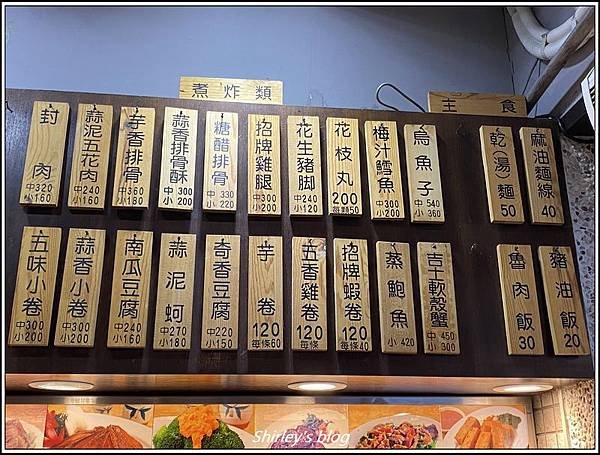 煮炸類
主食
封肉 中320 小160
蒜泥五花肉 中240 小160
芋香排骨 中360 小180
蒜香排骨酥 中300 小200
糖醋排骨 中330 小220
招牌雞腿 中300 小200
花生豬脚 中240 小120
花枝丸 200 每顆50
梅汁鱈魚 中300 小200
烏魚子 中540 小360
乾湯麵 50
麻油麵線 40
五味小卷 中300 小200
蒜香小卷 中300 小200
南瓜豆腐 中240 小160
蒜泥蚵 中270 小180
奇香豆腐 中220 小150
芋卷 120 每條60
五香雞卷 120 每條
招牌蝦卷 120 每條40
蒸鮑魚 小420
吉士軟殼蟹 中450 小300
魯肉飯 30
豬油飯 20
Shirley's blog